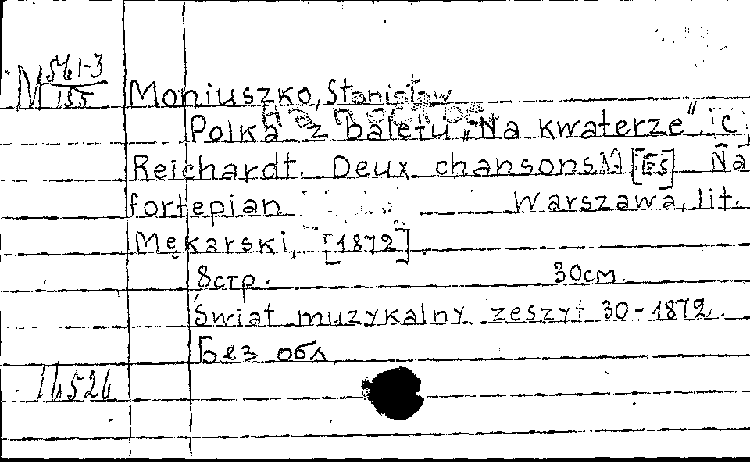 M 561-3/155
Moniuszko, Stanisław
Polka z baletu „Na kwaterze” [C,
Reichardt. Deux chansons [Es] Na
fortepian Warszawa, lit.
Mękarski, [1872]
8стр. 30см.
Świat muzykalny zeszyt 30-1872.
Без обл.